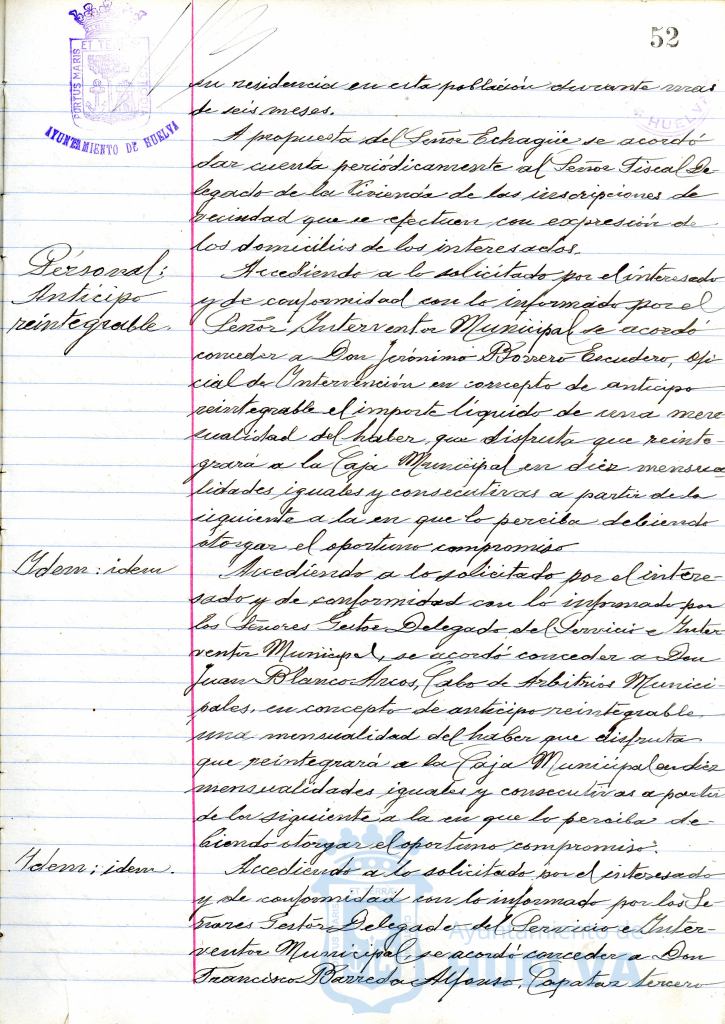 52
PORTUS MARIS
ET TERRAE
CUSTODIA
AYUNTAMIENTO DE HUELVA
HUELVA
su residencia en esta población durante mas
de seis meses.
A propuesta del Señor Echagüe se acordó
dar cuenta periódicamente al Señor Fiscal De-
legado de la Vivienda de las inscripciones de
vecindad que se efectuen con expresión de
los domicilios de los interesados.
Personal:
Anticipo
reintegrable.
Accediendo a lo solicitado por el interesado
y de conformidad con lo informado por el
Señor Interventor Municipal se acordó
conceder a Don Jerónimo Borrero Escudero, Ofi-
cial de Intervención en concepto de anticipo
reintegrable el importe líquido de una men-
sualidad del haber que disfruta que reinte-
grará a la Caja Municipal en diez mensua-
lidades iguales y consecutivas a partir de la
siguiente a la en que lo perciba debiendo
otorgar el oportuno compromiso
Idem: idem
Accediendo a lo solicitado por el intere-
sado y de conformidad con lo informado por
los Señores Gestor Delegado del Servicio e Inter-
ventor Municipal, se acordó conceder a Don
Juan Blanco Arcos, Cabo de Arbitrios Munici-
pales, en concepto de anticipo reintegrable
una mensualidad del haber que disfruta
que reintegrará a la Caja Municipal en diez
mensualidades iguales y consecutivas a partir
de la siguiente a la en que lo perciba de-
biendo otorgar el oportuno compromiso.
Idem: idem.
Accediendo a lo solicitado por el interesado
y de conformidad con lo informado por los Se-
ñores Gestor Delegado del Servicio e Inter-
ventor Municipal, se acordó conceder a Don
Francisco Barreda Alfonso, Capataz tercero
Ayuntamiento de
HUELVA